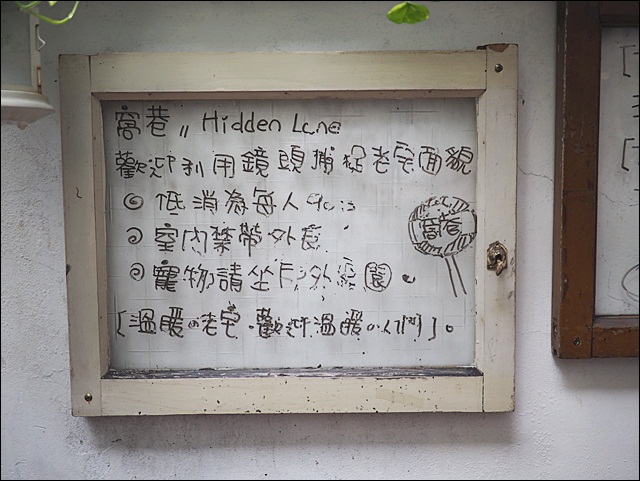 窩巷 〃 Hidden Lane
歡迎利用鏡頭捕捉老宅面貌
低消為每人90元
室內禁帶外食
寵物請坐戶外庭園。
窩巷
[溫暖の老宅。歡迎溫暖の人們]。